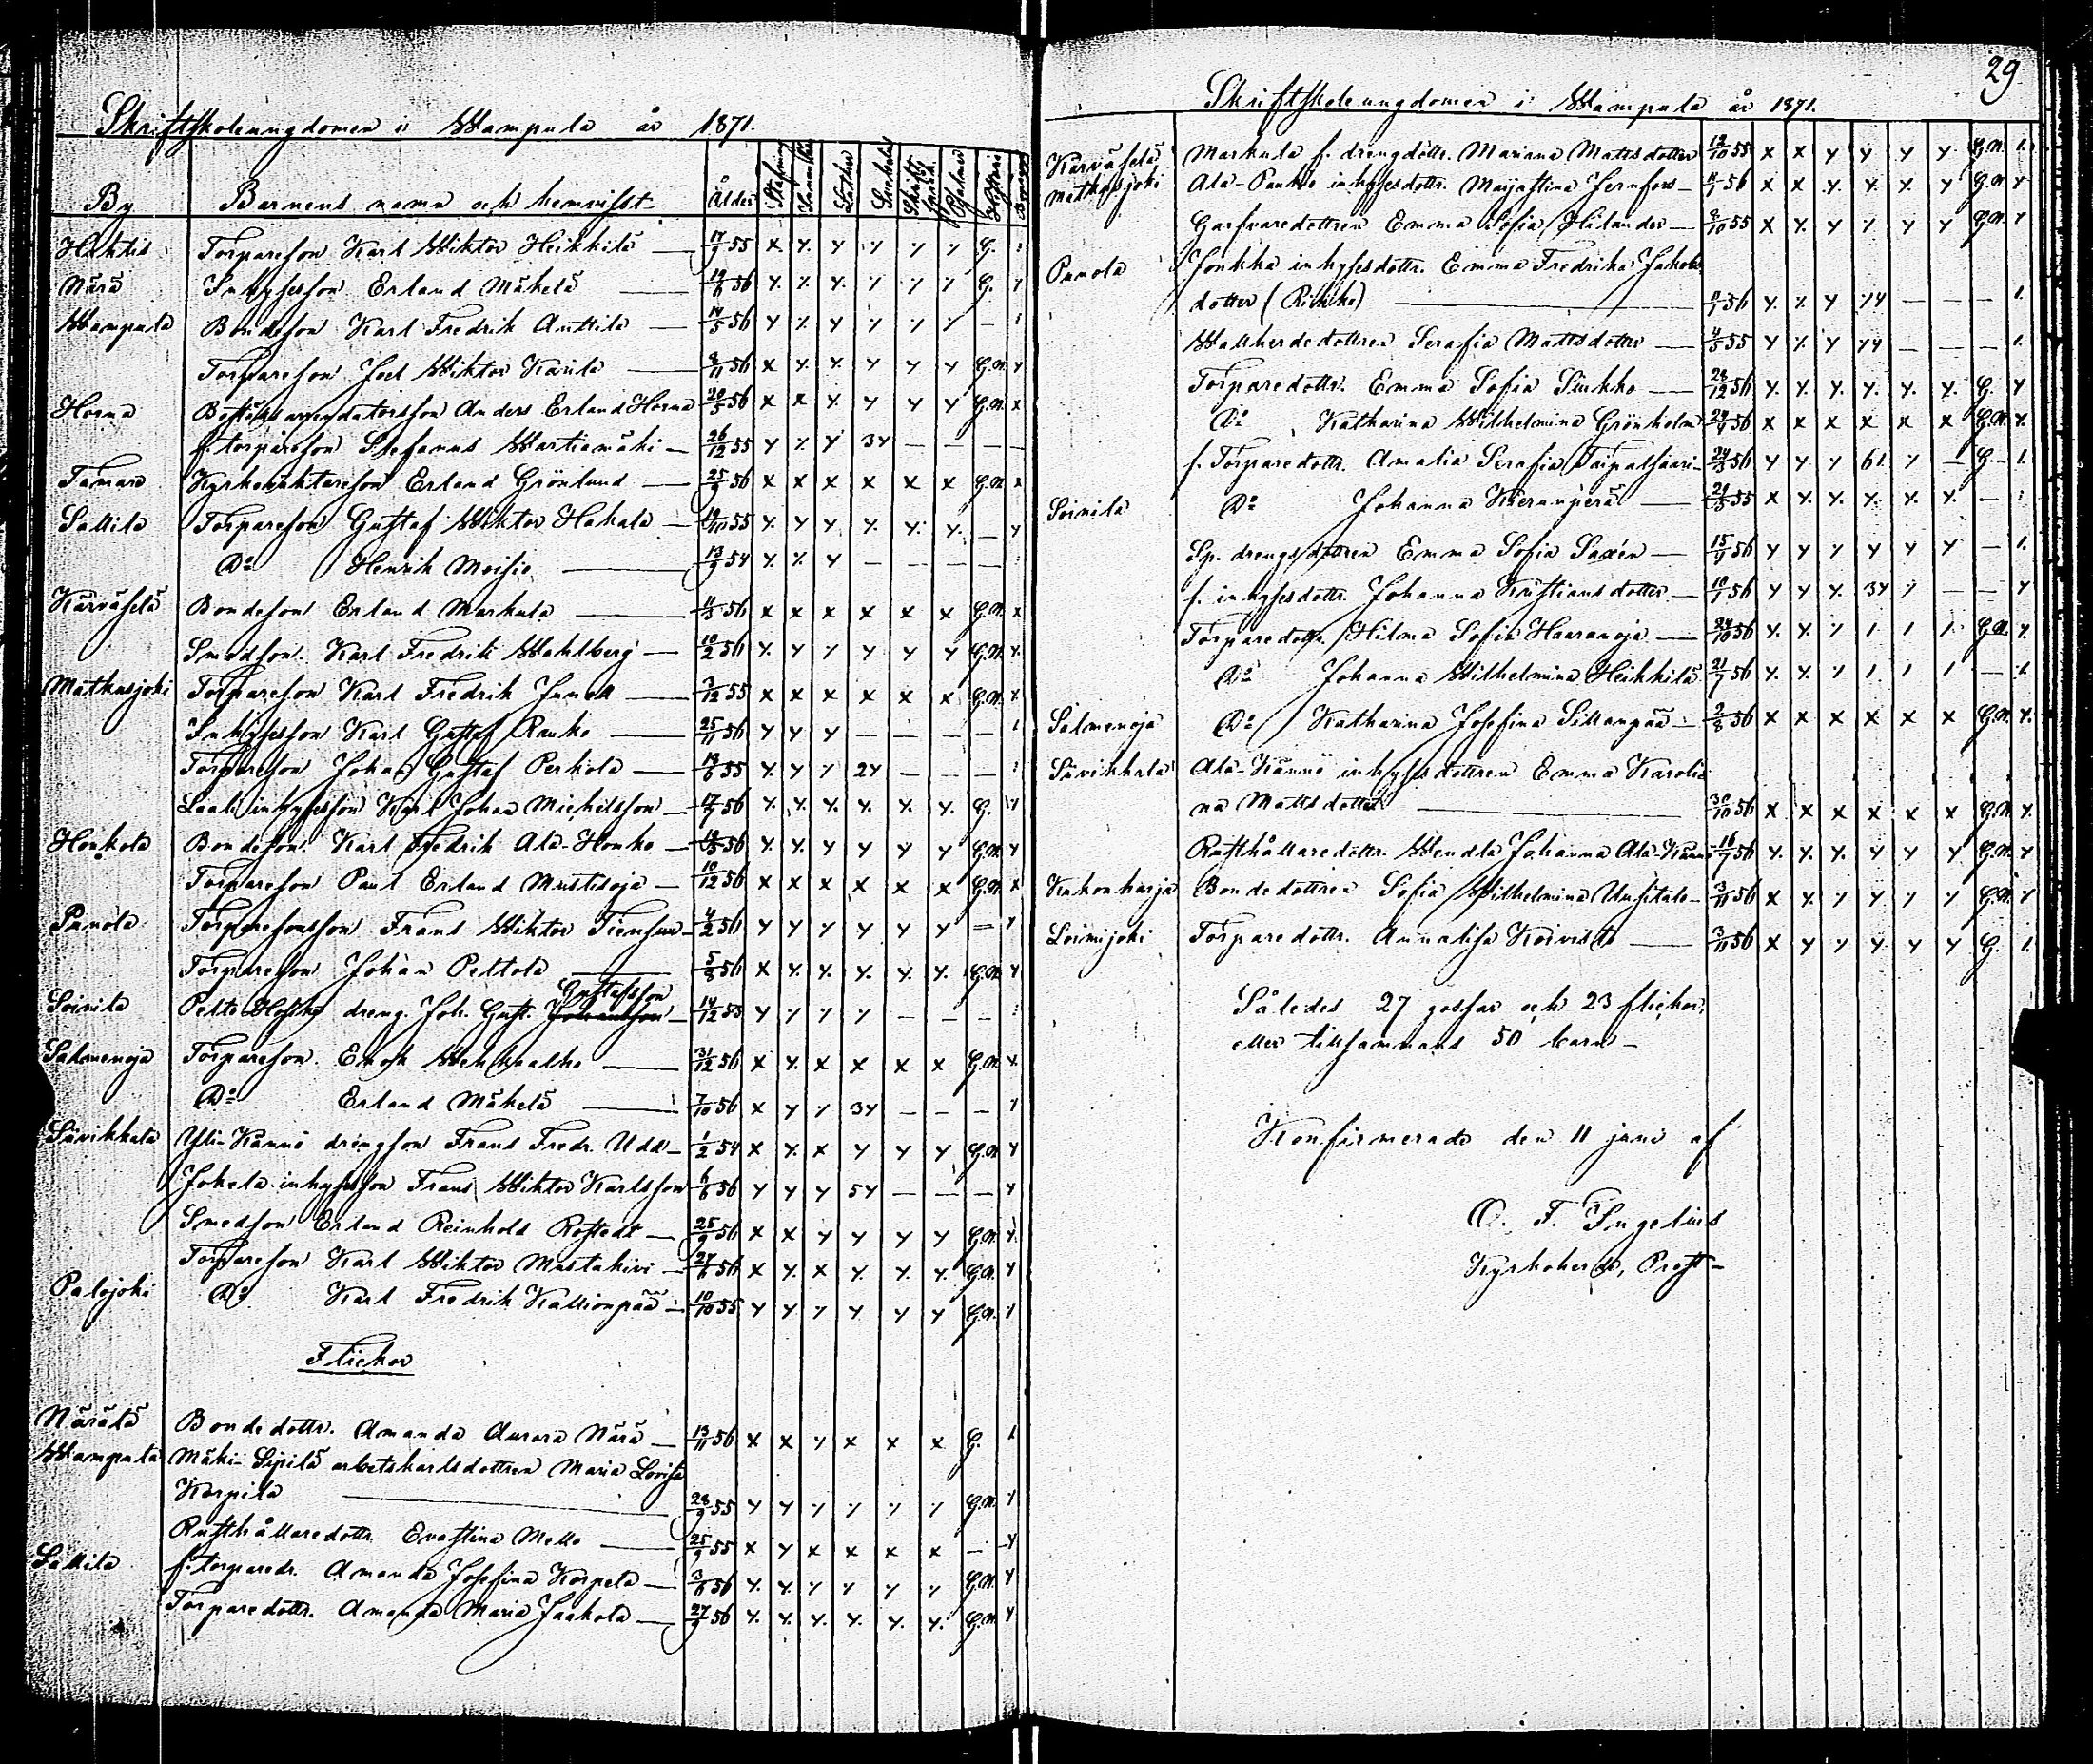 Skriftskoleungdomen i Wampula år 1871.
By Barnens namn och hemvist Ålder
Torpareson Karl Wiktor Heikkilä — 17/9 55 x y. y y y y G.
Närä Inhysesson Erland Mäkelä — 19/6 56 y. y. y. y y y G. y
Wampula Bondeson Karl Fredrik Anttila — 14/5 56 y y. y y y y —
Torpareson Joel Wiktor Karila — 9/11 56 x y. y. y y y G.N. y
Horna Anders Erland Horna 20/5 56 x x y. y y y G.N. x
f. torpareson Stefanus Wartiamäki — 26/12 55 y y. y 3y — — — —
Tamare Erland Grönlund — 25/9 56 x x x x x x G.N. x
Sallila Torpareson Gustaf Wiktor Hakala — 19/10 55 y. y y y. y. y. — y
Do Henrik Moisio — 13/9 54 y. y. y — — — —
Kärväselä Bondeson Erland Markula — 11/3 56 x x x x x x G.N. x
Smedson Karl Fredrik Wahlberg — 10/2 56 y. y y y y y G.N. y.
Matkusjoki Torpareson Karl Fredrik Junell — 3/12 55 x x x x x x G.N. y.
Inhysesson Karl Gustaf Rauko — 25/11 56 y y y — — — —
Torpareson Johan Gustaf Perkola — 19/6 55 y. y y 2y — — —
Laali inhysesson Karl Johan Michelsson — 17/9 56 y. y. y. y. y. y. G. y
Honkola Bondeson Karl Fredrik Ala-Honko — 18/3 56 y. y. y y y y G.N. y
Torpareson Paul Erland Mustioja — 10/12 56 x x x x x x G.N. x
Punola Frans Wiktor — 4/2 56 y y y y y y — y
Torpareson Johan Peltola — 5/8 56 x y. y. y. y. y. G.N. y
Gustafsson
Soinila dreng Joh. Gust. Johansson — 14/12 53 y y y y — — —
Salmenoja Torpareson Enok — 31/12 56 x y. x x x x G.N. y.
Do Erland Mäkelä — 7/10 56 x y y 3y — — — y
Sürikkala Yli-Kännö drengson Frans Fredr. Udd — 1/2 54 x y. x y y y G.N. y
Jokela inhysesson Frans Wiktor Karlsson 6/6 56 y y y 5y — — — y
Smedson Erland Reinhold Rostedt — 25/9 56 x x y y y y G.N. y.
Torpareson Karl Wiktor Mustakivi — 27/6 56 x y. x y. y. y. G.N. y
Palojoki Do Karl Fredrik Kallionpää — 10/10 55 y y y y y y G.N. y
Flickor
Närälä Bondedottr. Amanda Aurora Närä — 13/11 56 x x y x x x G.
Wampula Mäki-Sipilä arbetskarlsdottren Maria Lovisa
Korpila — 28/9 55 y y y y y y G.N. y
Rusthållaredottr. Evastina Mello — 25/9 55 x y x x x x — y
Sallila f. torparedr. Amanda Josefina Korpela — 3/6 56 y. y. y y y y G.N. y
Torparedottr. Amanda Maria Jaakola — 27/9 56 y. y. y. y. y. y. G.N. y
29
Skriftskoleungdomen i Wampula år 1871.
Kärväselä Markula f. drengdottr. Mariana Mattsdotter 12/10 55 x x y y y y. G.N.
Matkusjoki Ala-Pankko inhysesdottr. Maijastina Jernfors — 11/1 56 x x y. y. y. y G.N. y
Garfvaredottren Emma Sofia Hilander — 8/10 55 x y. y y y y G.N. y
Punola Jonkka inhysesdottr. Emma Fredrika Jakobs
dotter (Rikko) — 11/1 56 y. y. y 7y — — —
Wallherdedottren Serafia Mattsdotter — 4/5 55 y y. y 7y — — —
Torparedottr. Emma Sofia Sinkko — 28/12 56 y. y. y. y. y. y. G. y
Do Katharina Wilhelmina Grönholm 29/9 56 x x x x x x G.N. y.
f. Torparedottr. Amalia Serafia Taipalsaari — 24/3 56 y y y 6y y — G —
Soinila Do Johanna Kerunperä — 21/3 55 x y. y. y. y. y. —
Sp. drengsdottren Emma Sofia Saxén — 15/9 56 y y y y y y —
f. inhysesdottr. Johanna Kristiansdotter — 10/1 56 y y y. 3y y — — y
Torparedottr. Hilma Sofia Haaranoja — 24/10 56 y. y. y y y y G.N. y.
Do Johanna Wilhelmina Heikkilä 21/7 56 y. y. y y y y —
Salmenoja Do Katharina Josefina Sillanpää — 2/8 56 x x x x x x G.N. y.
Sürikkala Ala-Kännö inhysesdottren Emma Karoli-
na Mattsdotter — 30/10 56 x x x x x x G.N. y.
Rusthållaredottr. Wendla Johanna Ala-Kännö 16/7 56 y. y. y. y y y. G.N. y
Kukonharja Bondedottren Sofia Wilhelmina Uusitalo — 3/11 56 x y. y y y y G.N. y
Loimijoki Torparedottr. Annalisa Koivisto — 3/11 56 x y y y y y G.
Således 27 gossar och 23 flickor,
eller tillsammans 50 barn —
Konfirmerade den 11 juni af
O. F. Ingelius
Kyrkoherde, Prost —